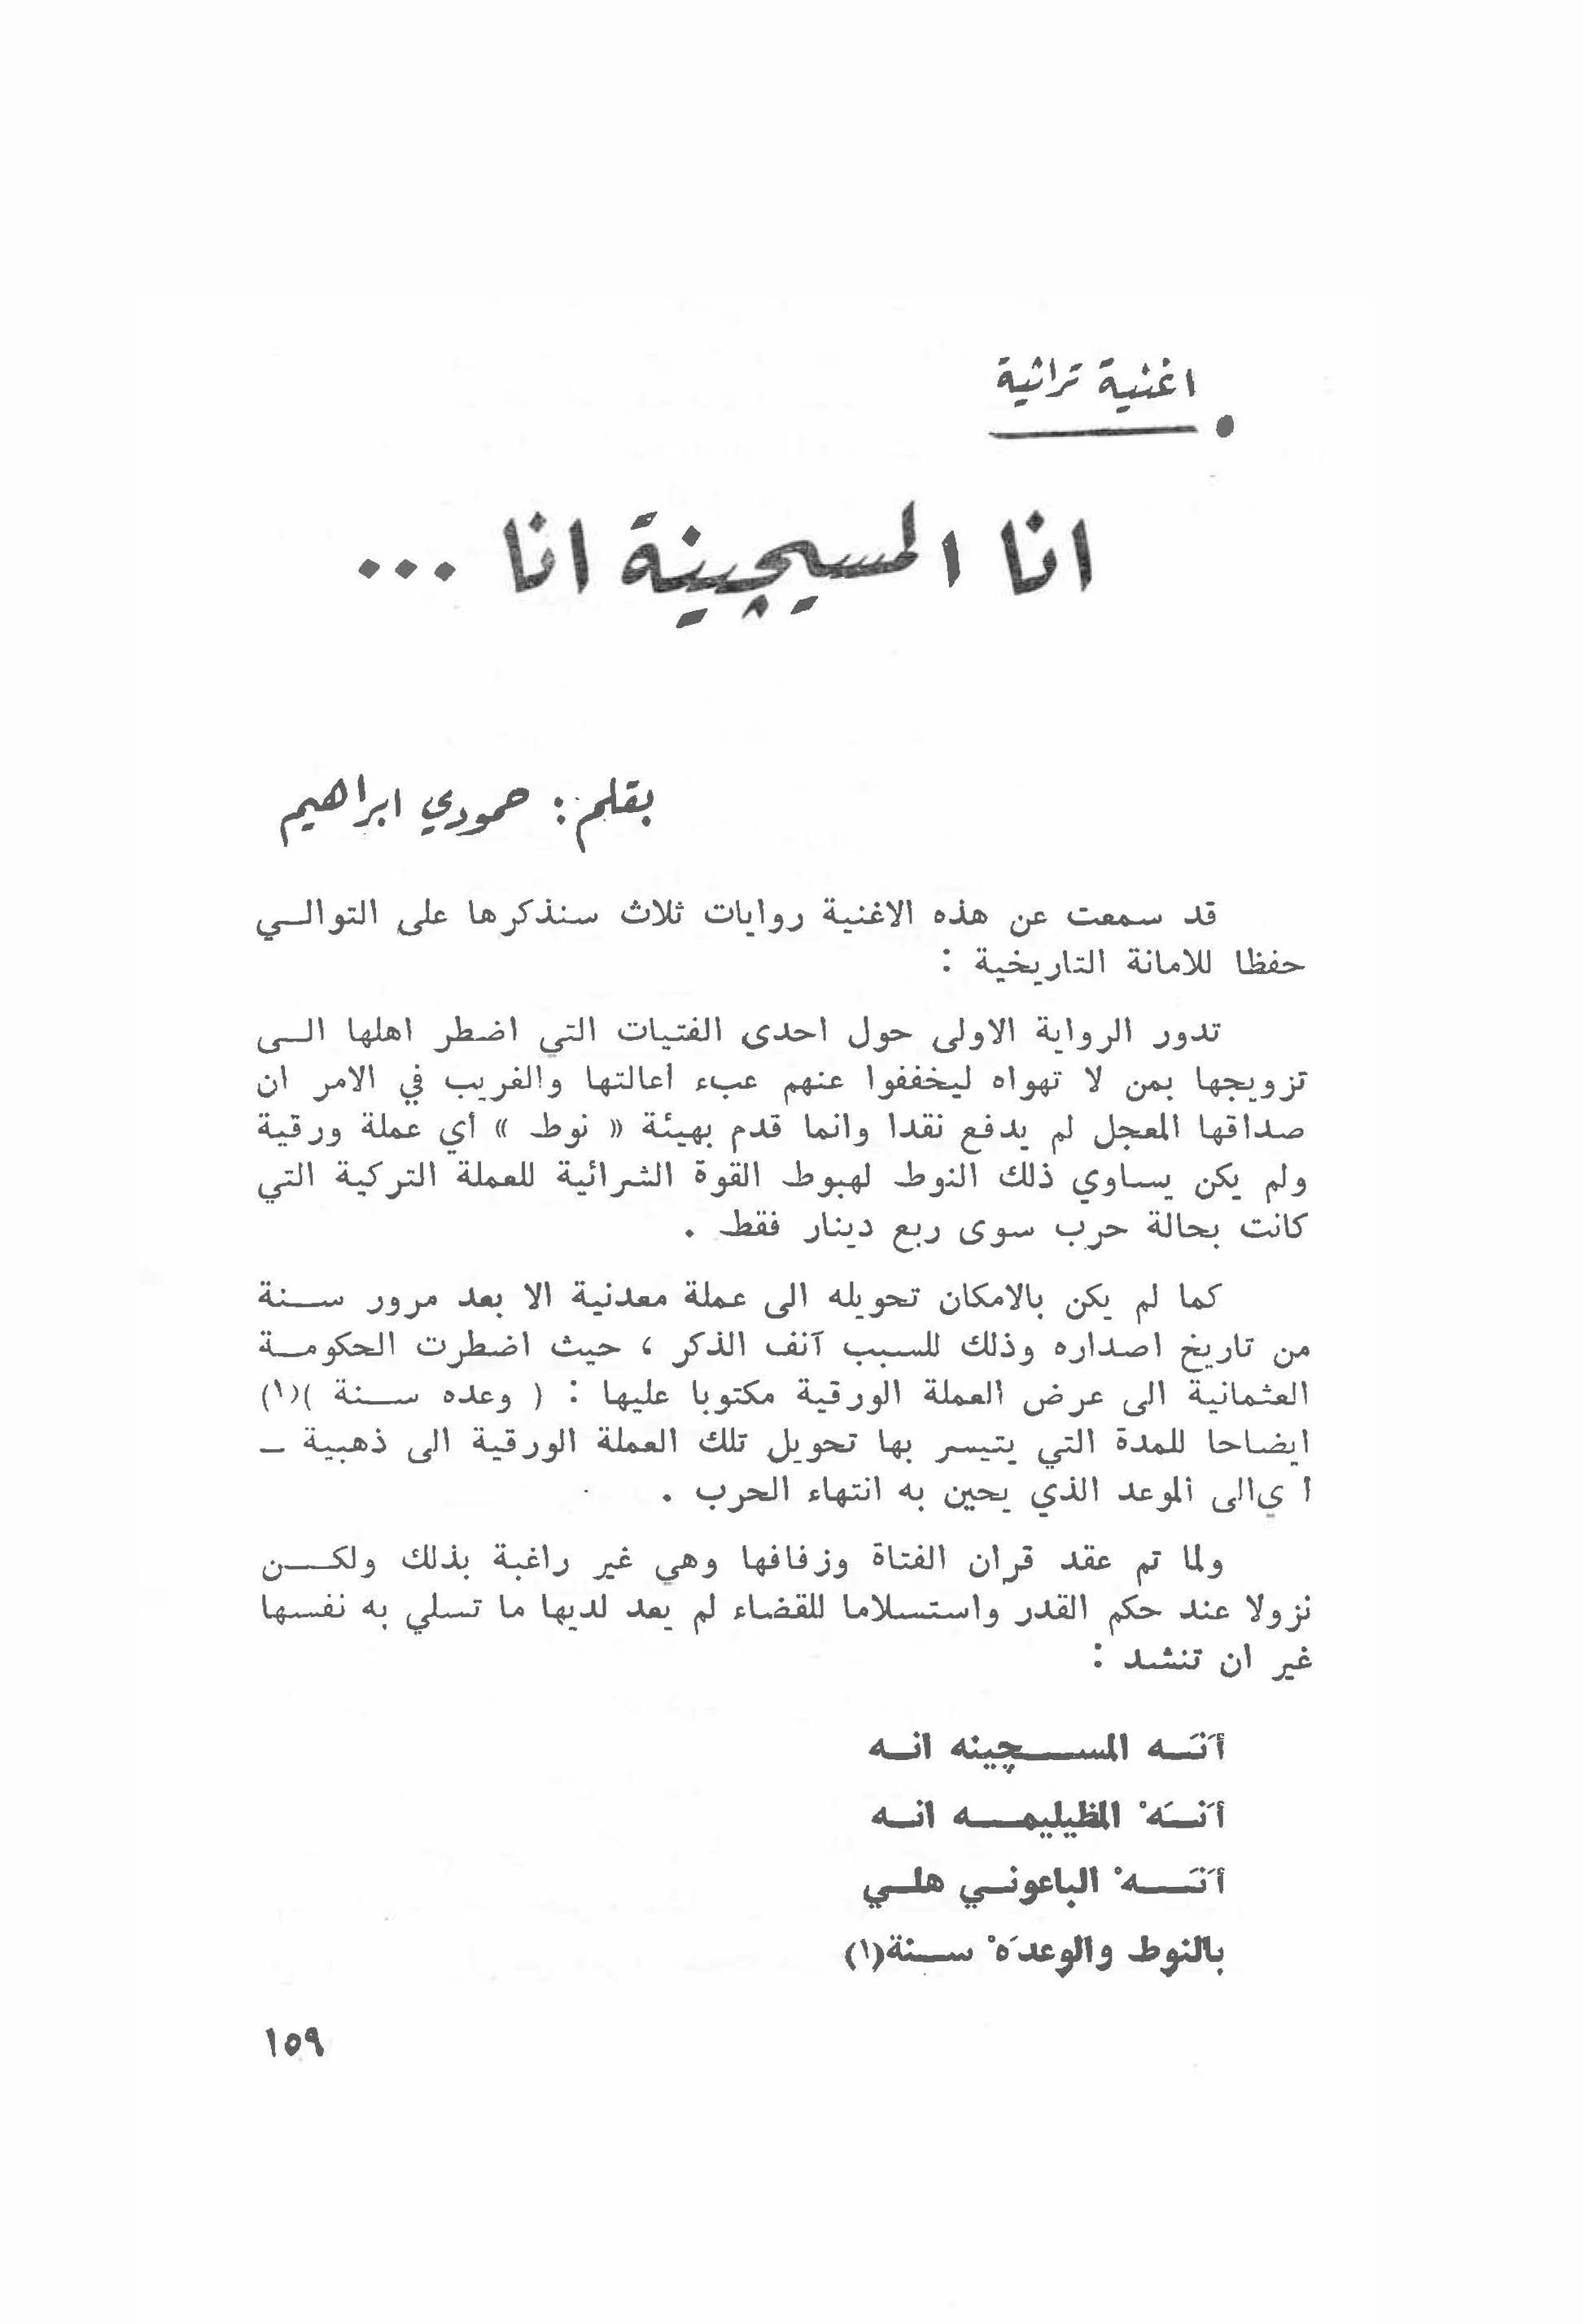 اغنية تراثية
انا المسيچينة انا ...
بقلم : حمودي ابراهيم
قد سمعت عن هذه الاغنية روايات ثلاث سنذكرها على التوالي
حفظا للامانة التاريخية :
تدور الرواية الاولى حول احدى الفتيات التي اضطر اهلها الى
تزويجها بمن لا تهواه ليخففوا عنهم عبء أعالتها والغريب في الامر ان
صداقها المعجل لم يدفع نقدا وانما قدم بهيئة « نوط » أي عملة ورقية
ولم يكن يساوي ذلك النوط لهبوط القوة الشرائية للعملة التركية التي
كانت بحالة حرب سوى ربع دينار فقط .
كما لم يكن بالامكان تحويله الى عملة معدنية الا بعد مرور سنة
من تاريخ اصداره وذلك للسبب آنف الذكر ، حيث اضطرت الحكومة
العثمانية الى عرض العملة الورقية مكتوبا عليها : ( وعده سنة )(١)
ايضاحا للمدة التي يتيسر بها تحويل تلك العملة الورقية الى ذهبية -
أ يالى الموعد الذي يحين به انتهاء الحرب .
ولما تم عقد قران الفتاة وزفافها وهي غير راغبة بذلك ولكن
نزولا عند حكم القدر واستسلاما للقضاء لم يعد لديها ما تسلي به نفسها
غير ان تنشد :
أَنَه المسچينه انه
أَنَهْ المظيليمه انه
أَنَهْ الباعوني هلي
بالنوط والوعدَهْ سنة(١)
١٥٩